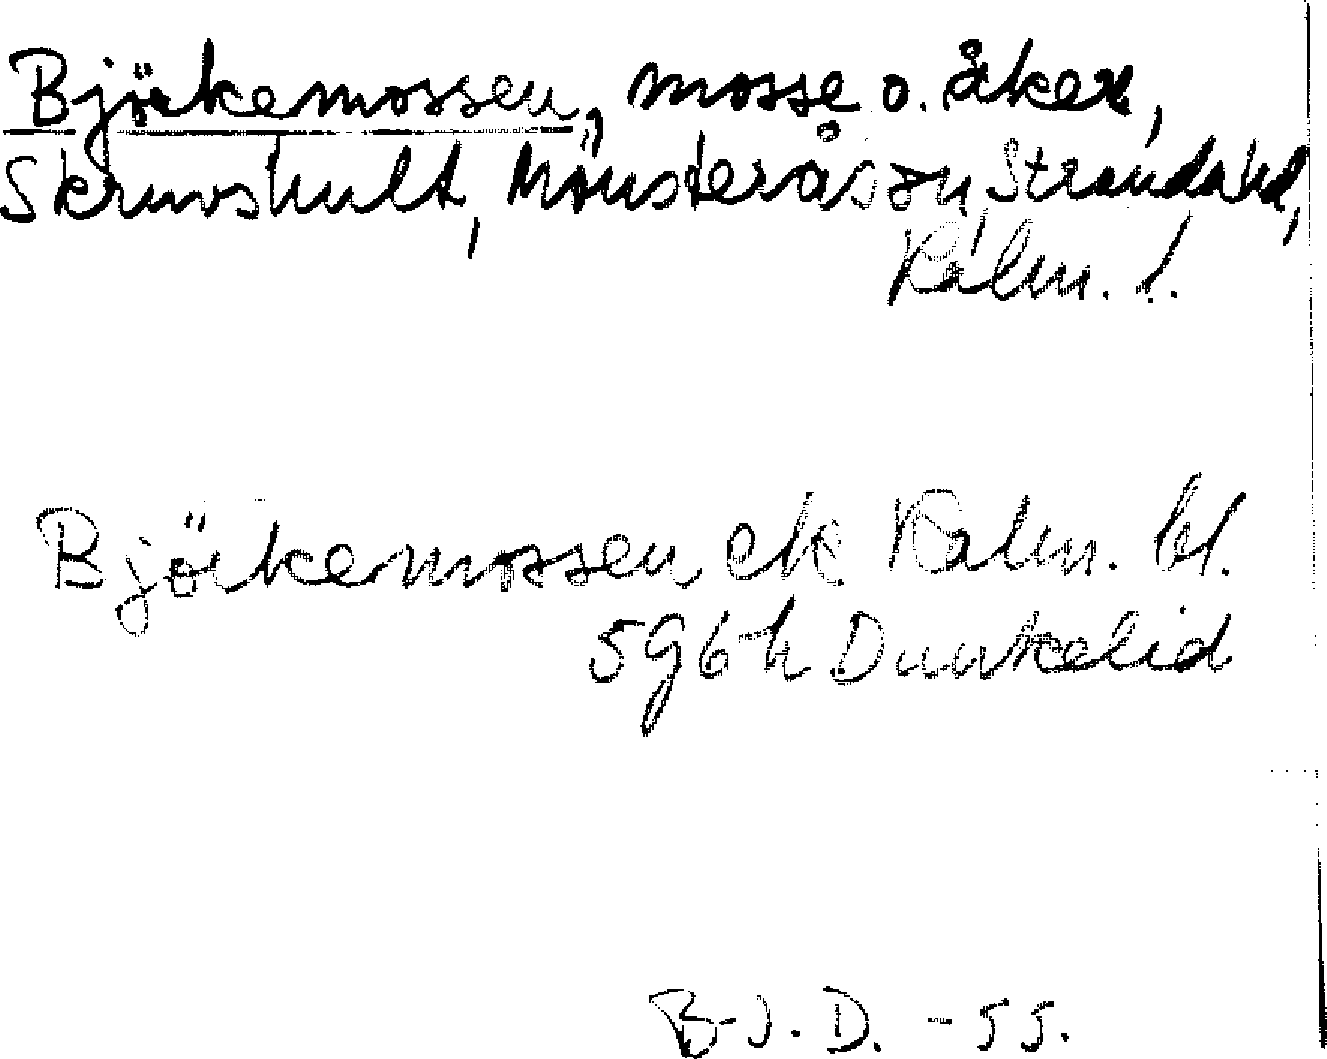 Björkemossen, mosse o. åker,
Skruvshult, Mönsterås sn, Strandahd,
Kalm. l.
Björkemossen ek. Kalm. bl.
5g6h Dunkelid
B-J. D. -55.